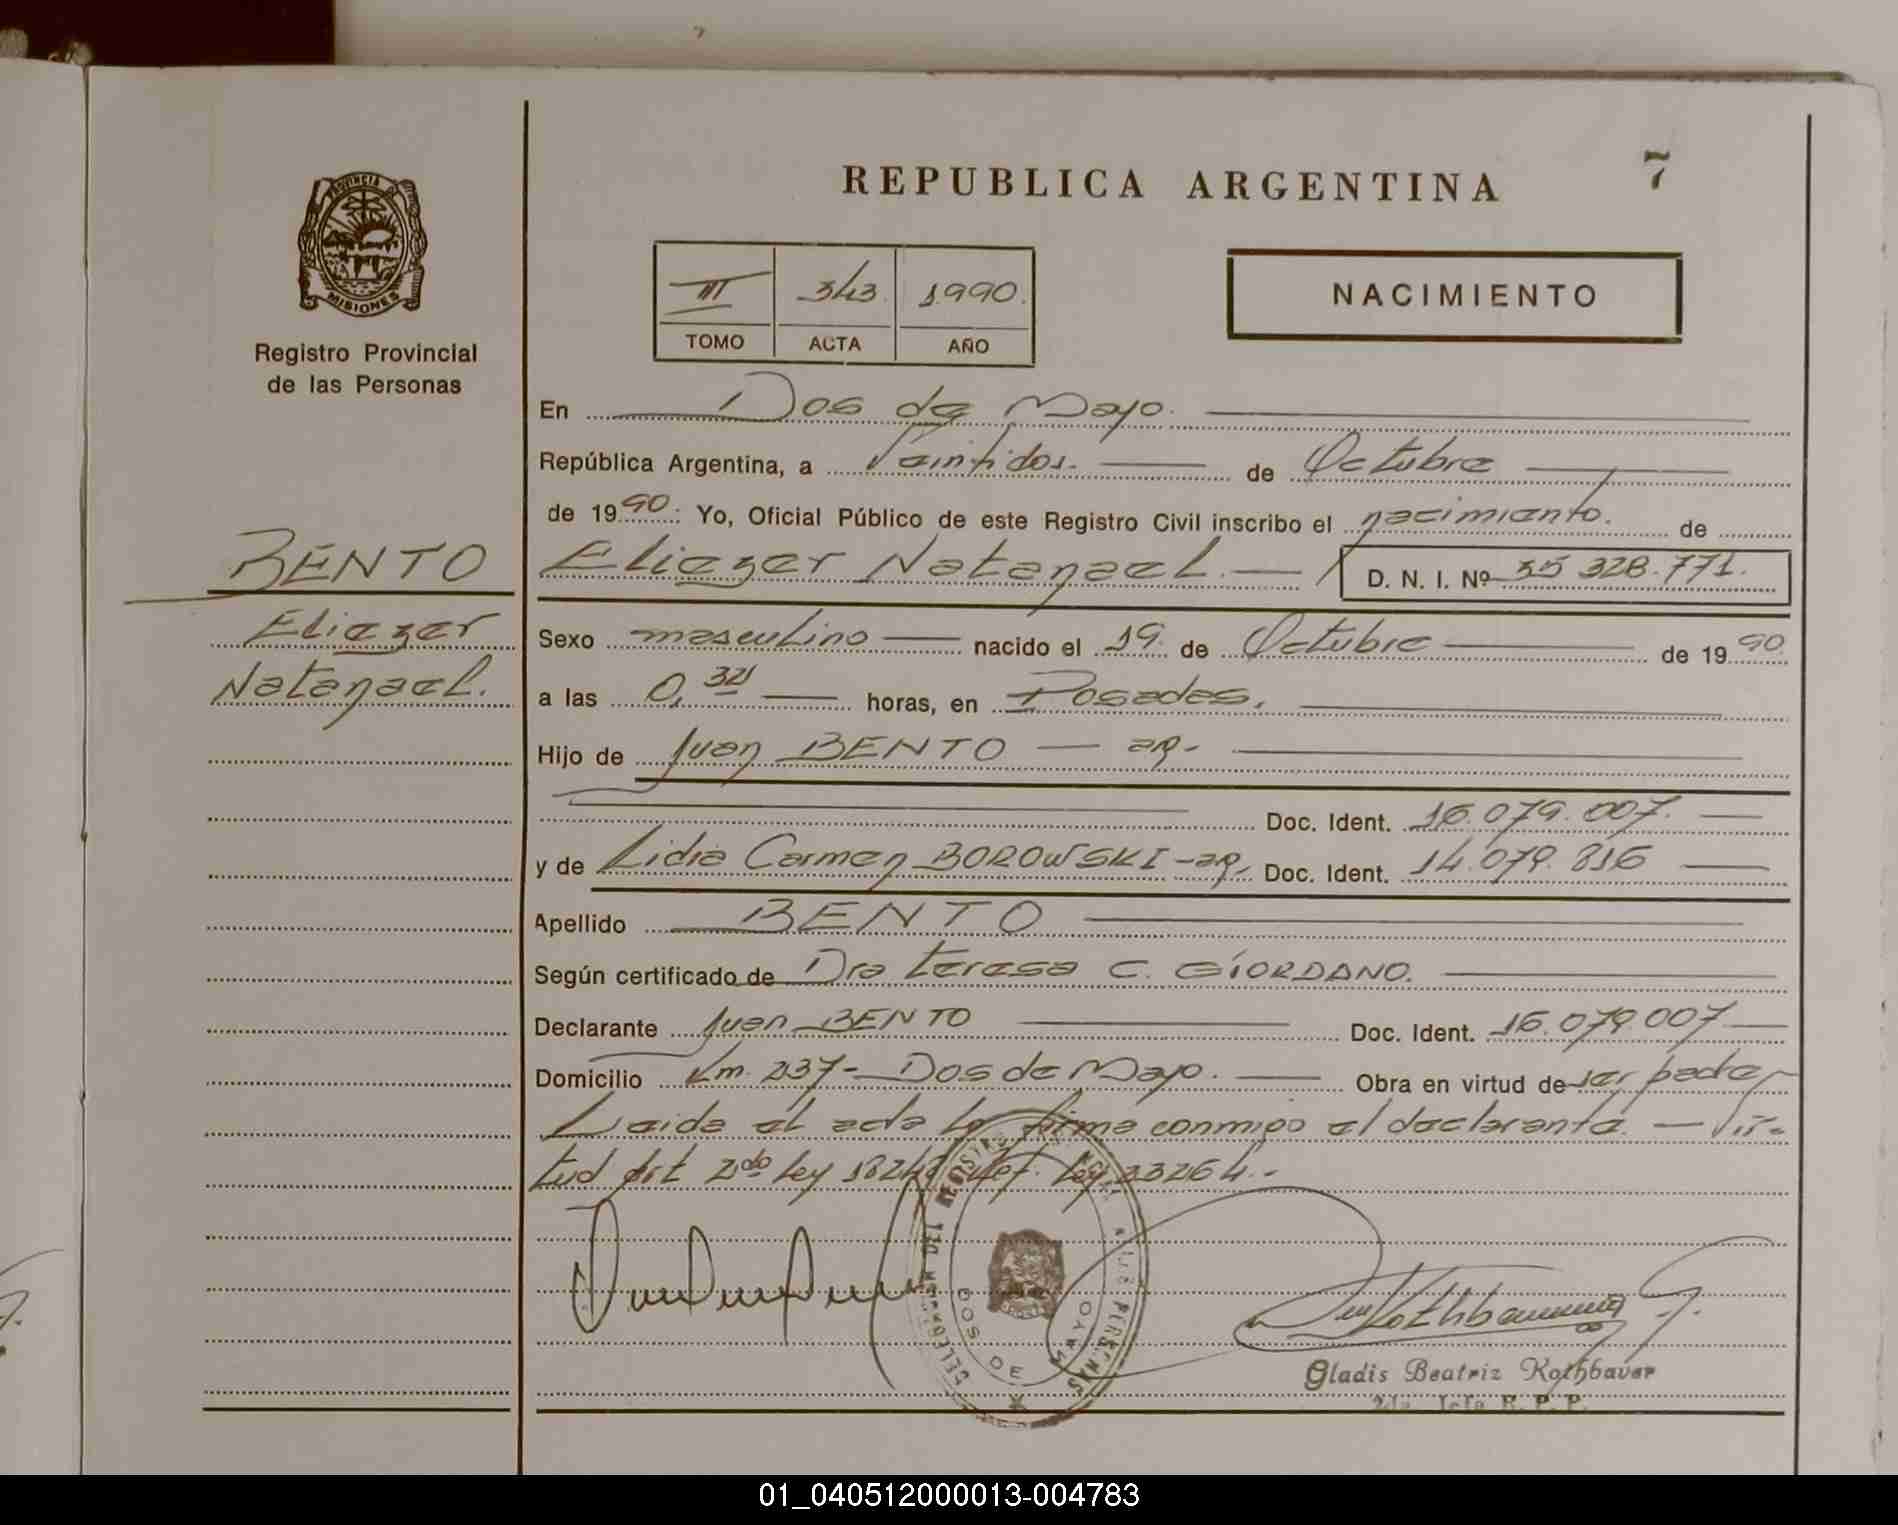 REPUBLICA ARGENTINA
7
PROVINCIA DE
MISIONES
Registro Provincial
de las Personas
III 343. 1990.
TOMO ACTA AÑO
NACIMIENTO
En Dos de Mayo.
República Argentina, a Veintidos. de Octubre
de 1990: Yo, Oficial Público de este Registro Civil inscribo el nacimiento. de
BENTO
Eliezer
Natanael.
Eliezer Natanael. D. N. I. Nº 35 328.771.
Sexo masculino nacido el 19. de Octubre de 1990.
a las 0, horas, en Posadas.
Hijo de Juan BENTO — ar.
Doc. Ident. 16.079.007.
y de Lidia Carmen BOROWSKI - ar. Doc. Ident. 14.079.816
Apellido BENTO
Según certificado de Dra Teresa C. GIORDANO.
Declarante Juan BENTO Doc. Ident. 16.079.007
Domicilio Km. 237 - Dos de Mayo. Obra en virtud de ser padre
Leida el acta la firma conmigo el declarante. — Vir-
tud Art 2do Ley 18248 Ley 23264.-
DOS DE MAYO
Gladis Beatriz Kothbauer
2da. Jefa R. P. P.
01_040512000013-004783